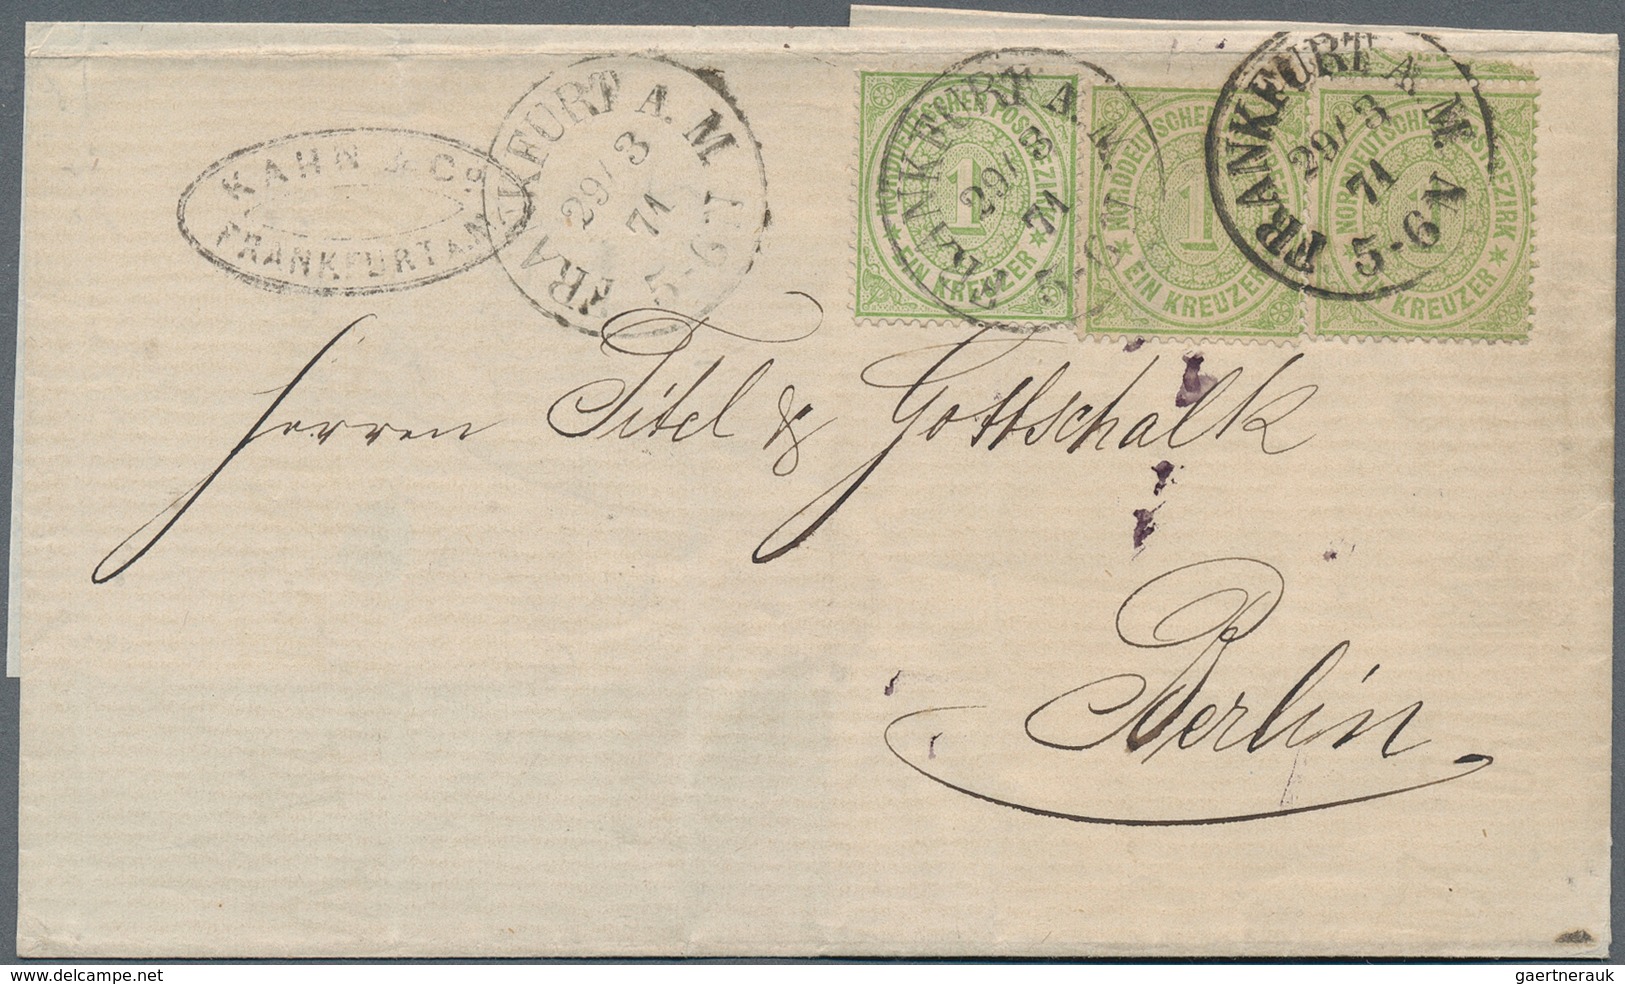 KAHN & Co.
FRANKFURT A M
FRANKFURT A. M.
29/ 3
71
5-6 N
NORDDEUTSCHER POSTBEZIRK
1
EIN KREUZER
FRANKFURT A. M.
29/ 3
71
5-6 N
NORDDEUTSCHER
1
EIN KREUZER
NORDDEUTSCHER POSTBEZIRK
1
EIN KREUZER
FRANKFURT A. M.
29/ 3
71
5-6 N
Herren Titel & Gottschalk
Berlin
www.delcampe.net
gaertnerauk